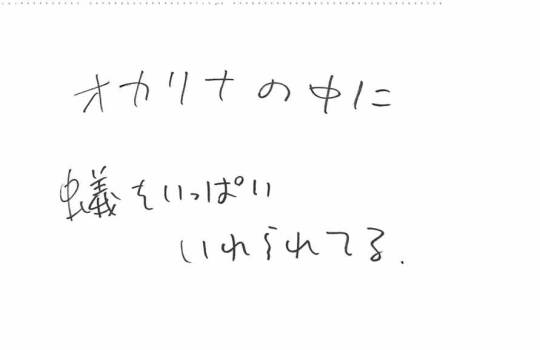 オカリナの中に
蟻をいっぱい
いれられてる.